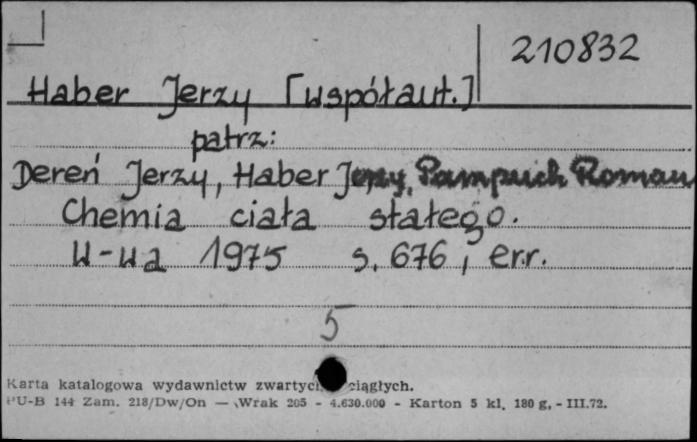 210832
Haber Jerzy [współaut.]
patrz:
Dereń Jerzy, Haber Jerzy, Pampuch Roman
Chemia ciała stałego.
W-wa 1975 s. 676, err.
5
Karta katalogowa wydawnictw zwartych ciągłych.
PU-B 144 Zam. 218/Dw/On — Wrak 205 - 4.630.000 - Karton 5 kl. 180 g, - III.72.